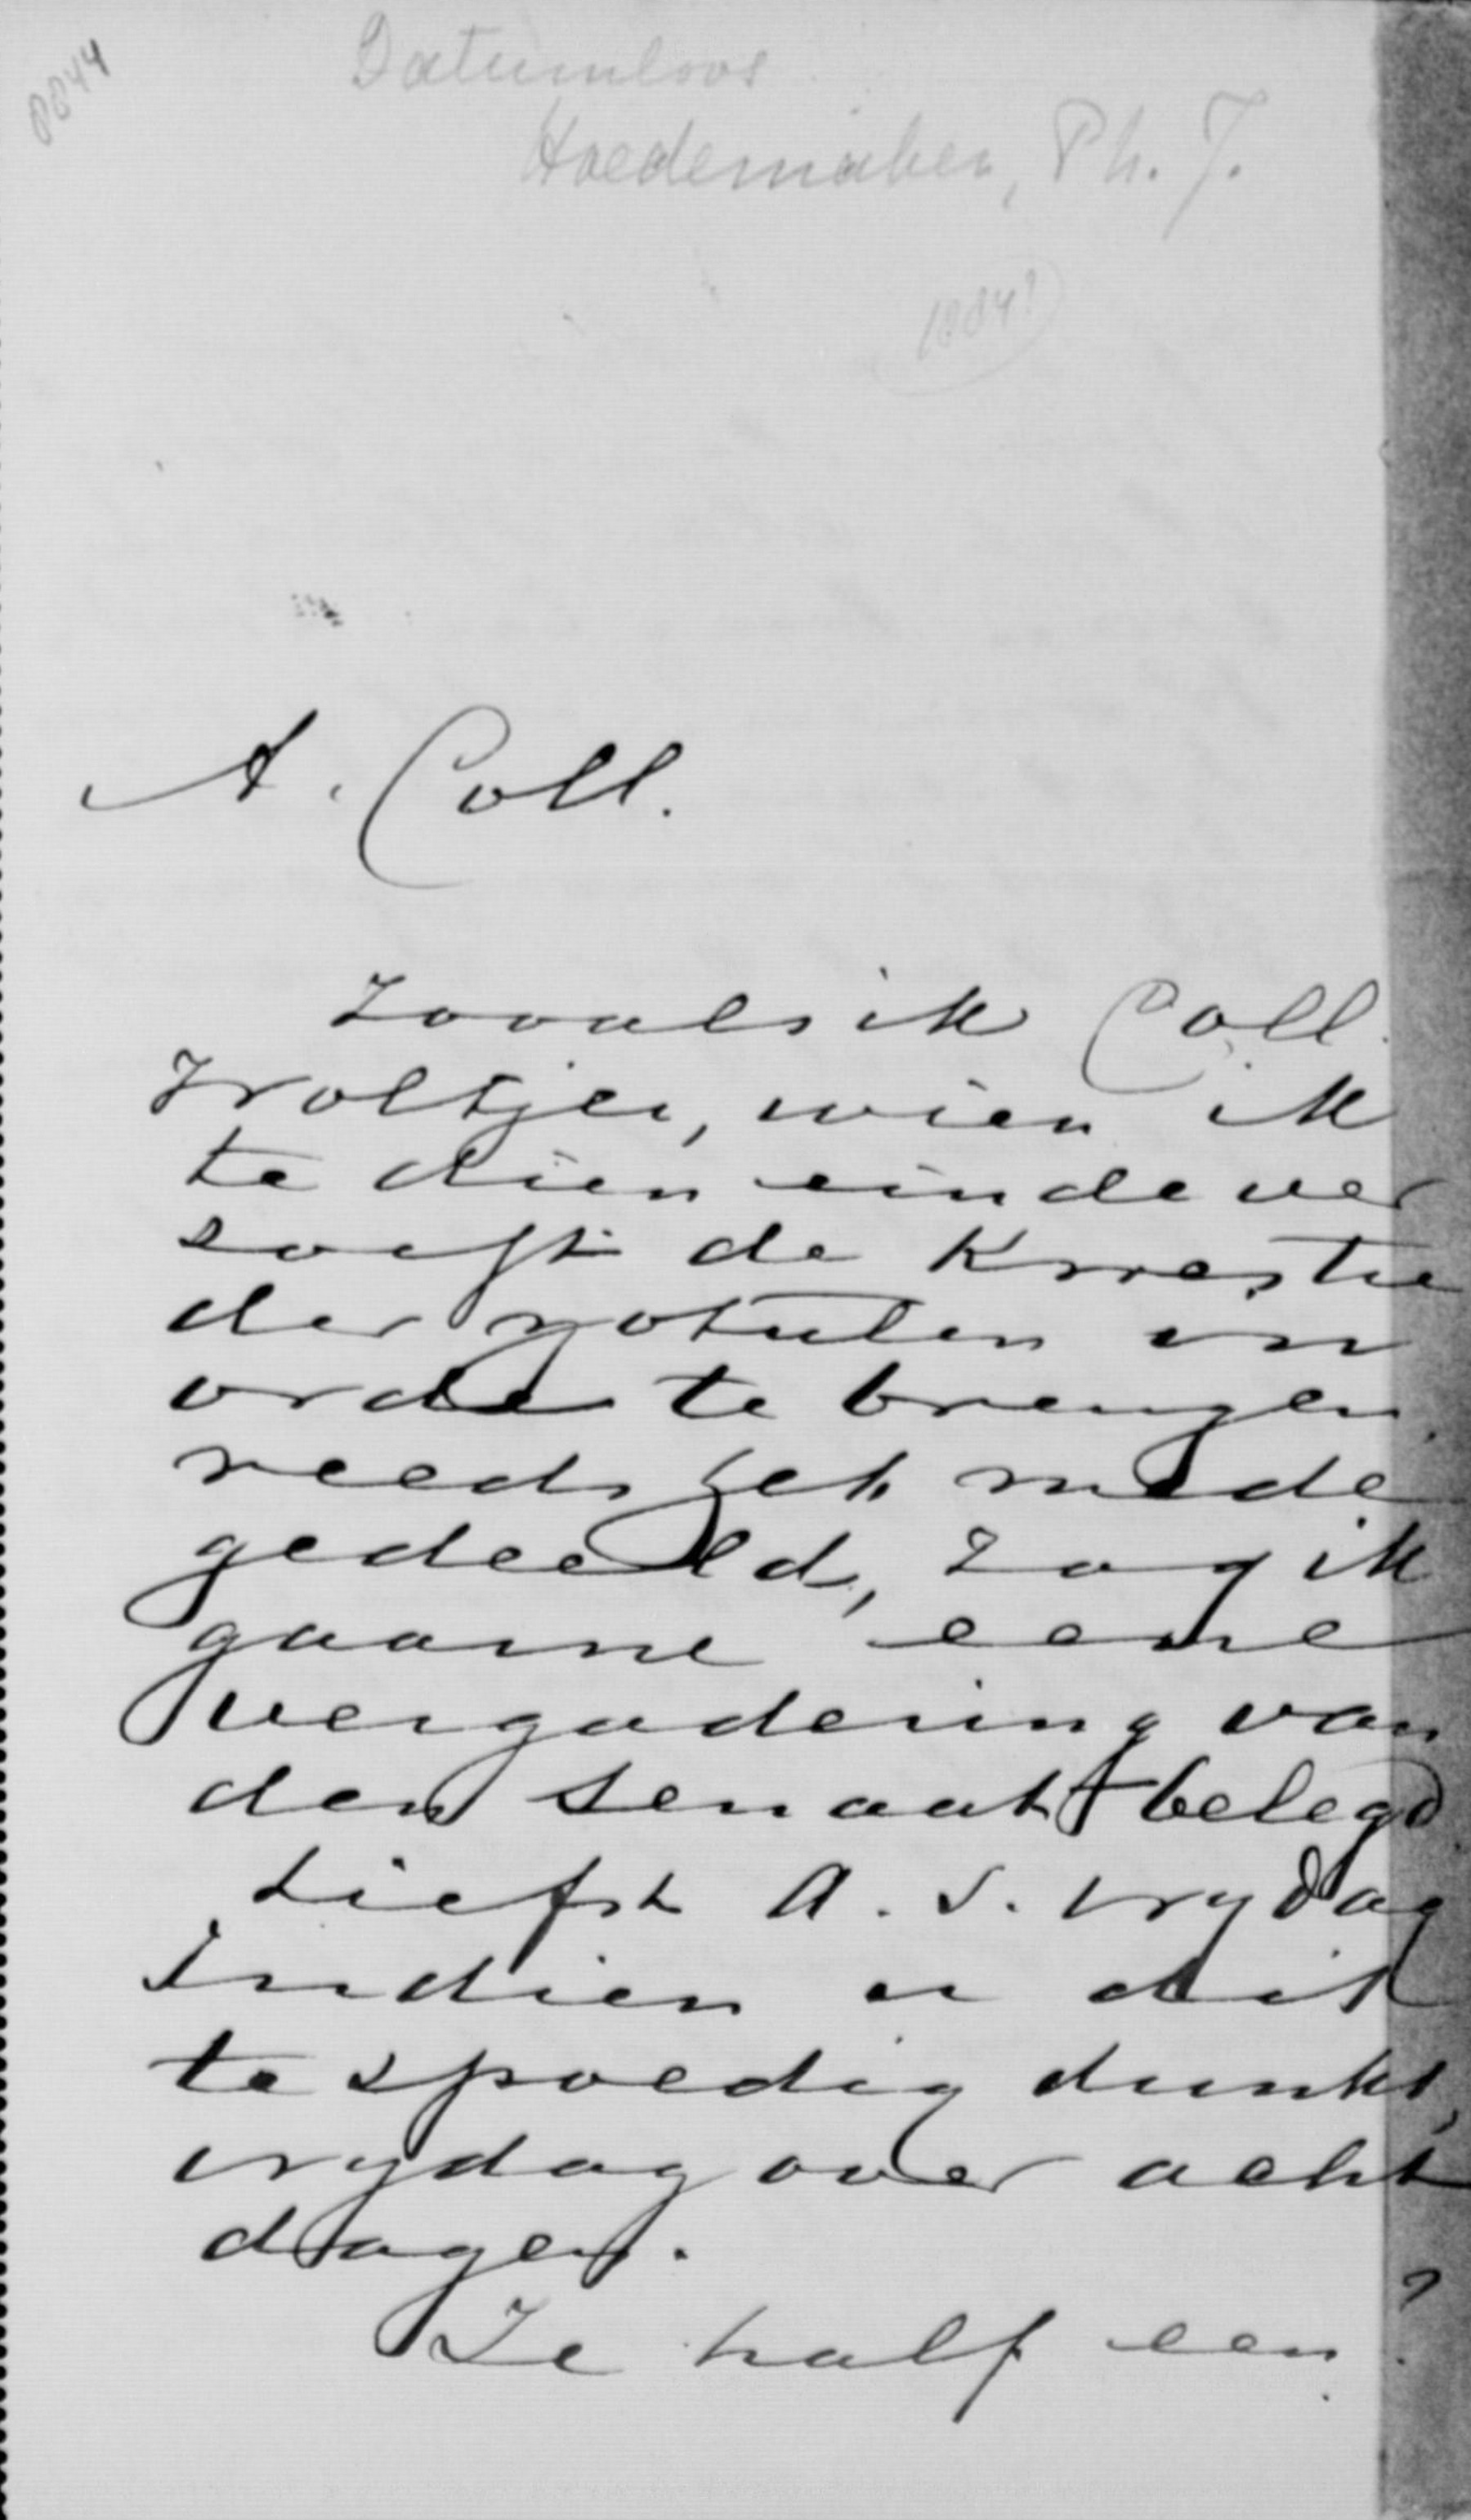 0044
Datumloos
Hoedemaker, Ph. J.
1884?
A. Coll.
Zooals ik Coll.
Woltjer, wien ik
te dien einde ver
zocht de kwestie
der notulen in
orde te brengen
reeds heb mede
gedeeld, zag ik
gaarne eene
vergadering van
den Senaat belegd
Liefst a. s. vrydag
Indien u dit
te spoedig dunkt,
vrydag over acht
dagen.
Te half een?